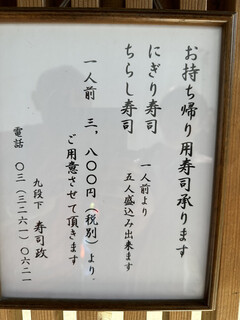 お持ち帰り用寿司承ります
にぎり寿司
ちらし寿司
一人前より
五人盛込み出来ます
一人前 三、八〇〇円(税別)より、
ご用意させて頂きます
九段下 寿司政
電話 〇三(三二六一)〇六二一